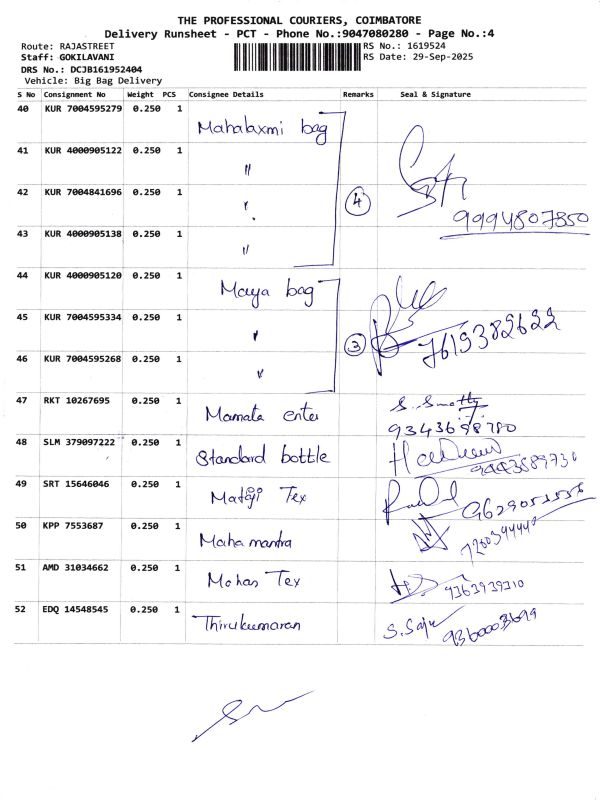 THE PROFESSIONAL COURIERS, COIMBATORE
Delivery Runsheet - PCT - Phone No.:9047080280 - Page No.:4
Route: RAJASTREET
RS No.: 1619524
Staff: GOKILAVANI
RS Date: 29-Sep-2025
DRS No.: DCJB161952404
Vehicle: Big Bag Delivery
S No Consignment No Weight PCS Consignee Details Remarks Seal & Signature
40 KUR 7004595279 0.250 1 Mahalaxmi bag
41 KUR 4000905122 0.250 1 "
42 KUR 7004841696 0.250 1 4
9994807350
43 KUR 4000905138 0.250 1 "
44 KUR 4000905120 0.250 1 Maya bag
45 KUR 7004595334 0.250 1 " 3 7619382622
46 KUR 7004595268 0.250 1 "
47 RKT 10267695 0.250 1 Mamata enter
9343698780
48 SLM 379097222 0.250 1 Standard bottle
9443589730
49 SRT 15646046 0.250 1 Mataji Tex
50 KPP 7553687 0.250 1 Maha mantra
51 AMD 31034662 0.250 1 Mohan Tex 9363939310
52 EDQ 14548545 0.250 1 Thirukumaran S. Saju 9360003699